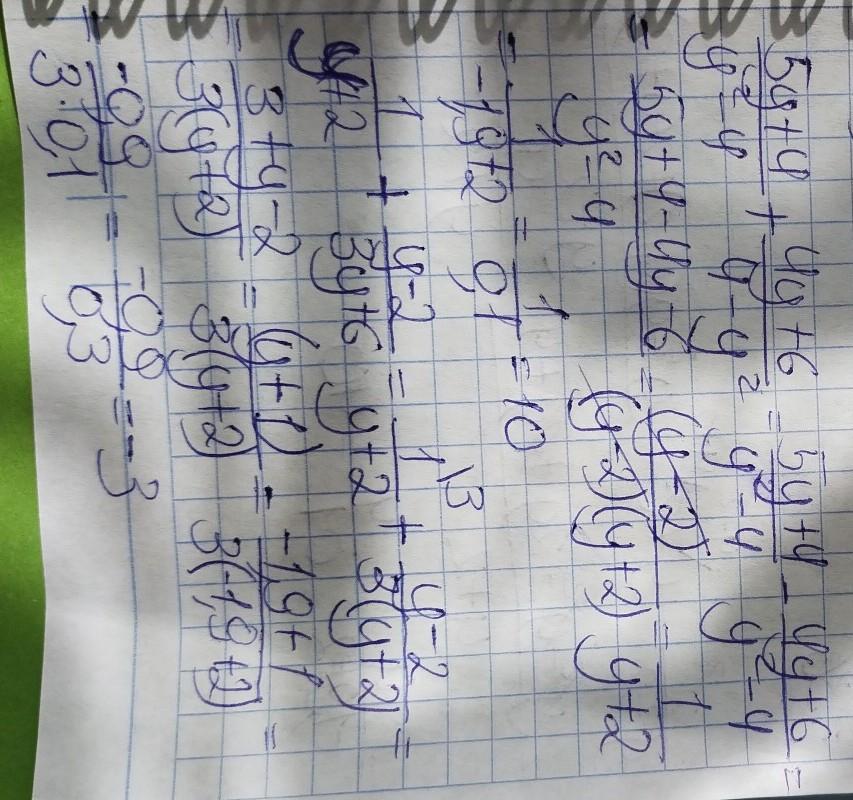 5y+4/y²-4 + 4y+6/4-y² = 5y+4/y²-4 - 4y+6/y²-4 =
= 5y+4-4y-6/y²-4 = (y-2)/(y-2)(y+2) = 1/y+2
= 1/-1,9+2 = 1/0,1 = 10
1/y+2 + y-2/3y+6 = 1\3/y+2 + y-2/3(y+2) =
= 3+y-2/3(y+2) = (y+1)/3(y+2) = -1,9+1/3(-1,9+2) =
= -0,9/3·0,1 = -0,9/0,3 = -3